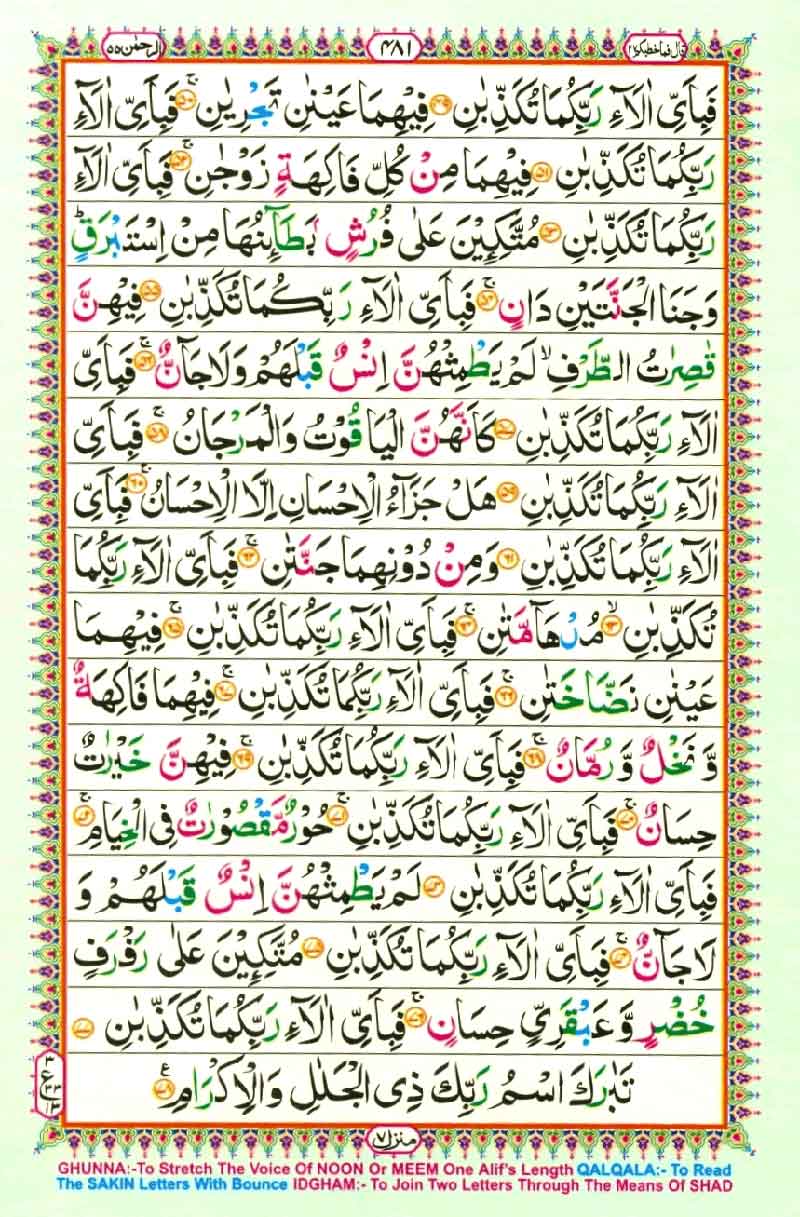 الرحمٰن ٥٥ ٤٨١ قال فما خطبكم ٢٧
فَبِاَيِّ اٰلَآءِ رَبِّكُمَا تُكَذِّبٰنِ ۝٤٩ فِيْهِمَا عَيْنٰنِ تَجْرِيٰنِ ۝٥٠ۚ فَبِاَيِّ اٰلَآءِ
رَبِّكُمَا تُكَذِّبٰنِ ۝٥١ فِيْهِمَا مِنْ كُلِّ فَاكِهَةٍ زَوْجٰنِ ۝٥٢ۚ فَبِاَيِّ اٰلَآءِ
رَبِّكُمَا تُكَذِّبٰنِ ۝٥٣ مُتَّكِـِٕيْنَ عَلٰى فُرُشٍۭ بَطَآىِٕنُهَا مِنْ اِسْتَبْرَقٍ ؕ
وَجَنَا الْجَنَّتَيْنِ دَانٍ ۝٥٤ۚ فَبِاَيِّ اٰلَآءِ رَبِّكُمَا تُكَذِّبٰنِ ۝٥٥ فِيْهِنَّ
قٰصِرٰتُ الطَّرْفِ ۙ لَمْ يَطْمِثْهُنَّ اِنْسٌ قَبْلَهُمْ وَلَا جَآنٌّ ۝٥٦ۚ فَبِاَيِّ
اٰلَآءِ رَبِّكُمَا تُكَذِّبٰنِ ۝٥٧ۚ كَاَنَّهُنَّ الْيَاقُوْتُ وَالْمَرْجَانُ ۝٥٨ۚ فَبِاَيِّ
اٰلَآءِ رَبِّكُمَا تُكَذِّبٰنِ ۝٥٩ هَلْ جَزَآءُ الْاِحْسَانِ اِلَّا الْاِحْسَانُ ۝٦٠ۚ فَبِاَيِّ
اٰلَآءِ رَبِّكُمَا تُكَذِّبٰنِ ۝٦١ وَمِنْ دُوْنِهِمَا جَنَّتٰنِ ۝٦٢ۚ فَبِاَيِّ اٰلَآءِ رَبِّكُمَا
تُكَذِّبٰنِ ۝٦٣ۙ مُدْهَآمَّتٰنِ ۝٦٤ۚ فَبِاَيِّ اٰلَآءِ رَبِّكُمَا تُكَذِّبٰنِ ۝٦٥ۚ فِيْهِمَا
عَيْنٰنِ نَضَّاخَتٰنِ ۝٦٦ۚ فَبِاَيِّ اٰلَآءِ رَبِّكُمَا تُكَذِّبٰنِ ۝٦٧ۚ فِيْهِمَا فَاكِهَةٌ
وَّ نَخْلٌ وَّ رُمَّانٌ ۝٦٨ۚ فَبِاَيِّ اٰلَآءِ رَبِّكُمَا تُكَذِّبٰنِ ۝٦٩ۚ فِيْهِنَّ خَيْرٰتٌ
حِسَانٌ ۝٧٠ۚ فَبِاَيِّ اٰلَآءِ رَبِّكُمَا تُكَذِّبٰنِ ۝٧١ۚ حُوْرٌ مَّقْصُوْرٰتٌ فِي الْخِيَامِ ۝٧٢ۚ
فَبِاَيِّ اٰلَآءِ رَبِّكُمَا تُكَذِّبٰنِ ۝٧٣ لَمْ يَطْمِثْهُنَّ اِنْسٌ قَبْلَهُمْ وَ
لَا جَآنٌّ ۝٧٤ۚ فَبِاَيِّ اٰلَآءِ رَبِّكُمَا تُكَذِّبٰنِ ۝٧٥ مُتَّكِـِٕيْنَ عَلٰى رَفْرَفٍ
خُضْرٍ وَّ عَبْقَرِيٍّ حِسَانٍ ۝٧٦ۚ فَبِاَيِّ اٰلَآءِ رَبِّكُمَا تُكَذِّبٰنِ ۝٧٧
تَبٰرَكَ اسْمُ رَبِّكَ ذِي الْجَلٰلِ وَالْاِكْرَامِ ۝٧٨
٣
ع ٣٣
١٣
منزل ٧
GHUNNA:-To Stretch The Voice Of NOON Or MEEM One Alif's Length QALQALA:- To Read
The SAKIN Letters With Bounce IDGHAM:- To Join Two Letters Through The Means Of SHAD